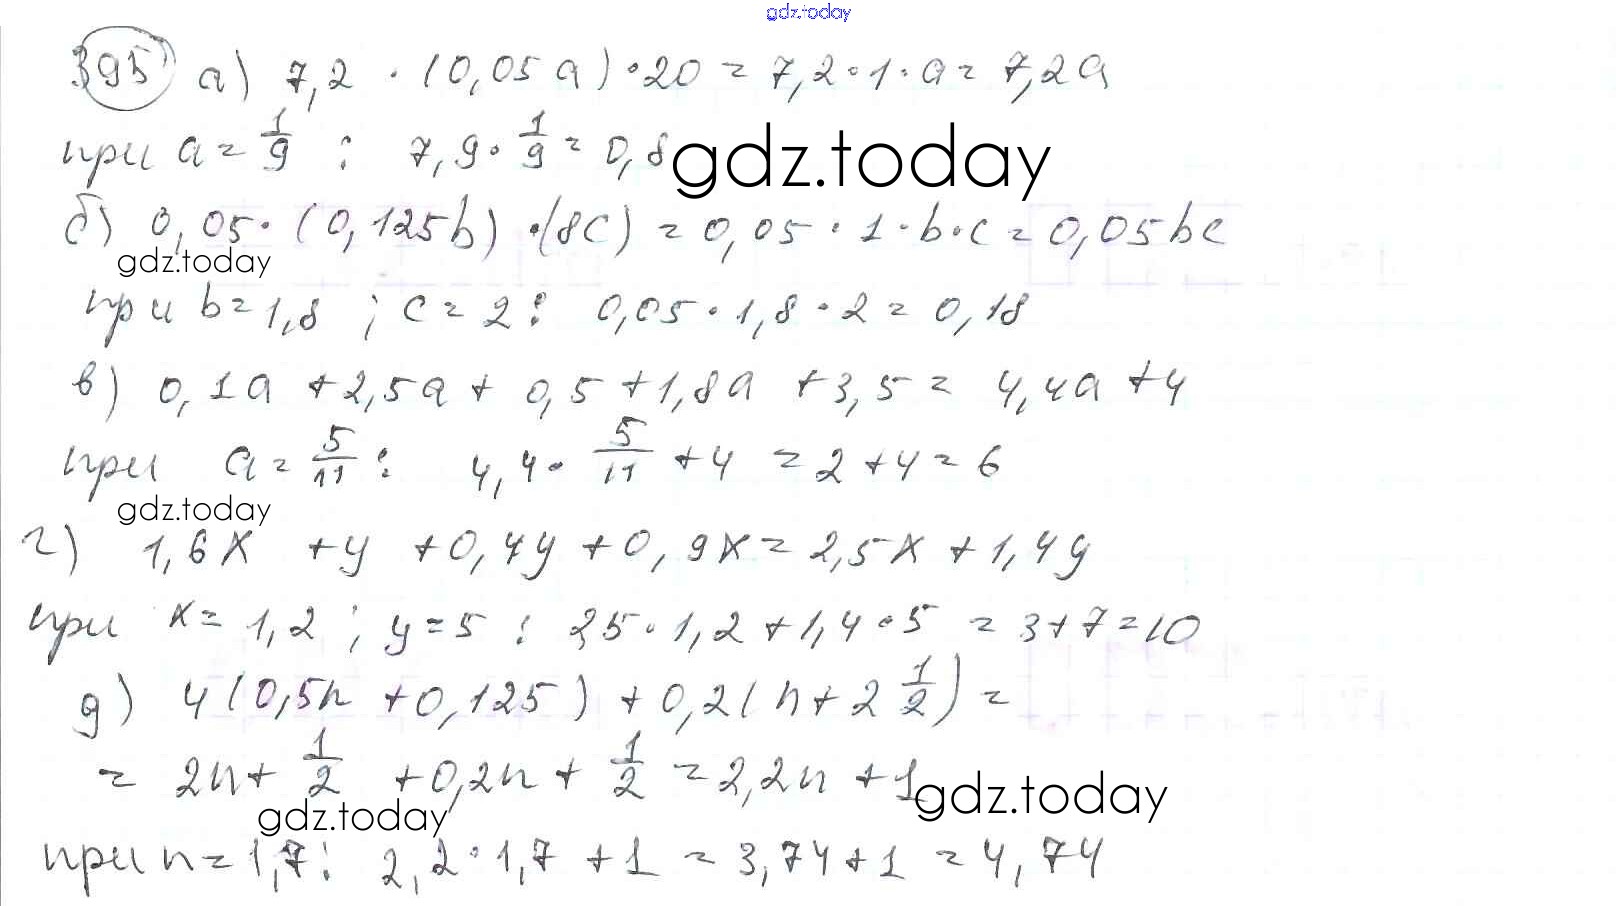 gdz.today
395 а) 7,2 · (0,05a) · 20 = 7,2 · 1 · a = 7,2a
при a = 1/9 : 7,9 · 1/9 = 0,8
gdz.today
б) 0,05 · (0,125b) · (8c) = 0,05 · 1 · b · c = 0,05bc
gdz.today
при b = 1,8 ; c = 2 : 0,05 · 1,8 · 2 = 0,18
в) 0,1a + 2,5a + 0,5 + 1,8a + 3,5 = 4,4a + 4
при a = 5/11 : 4,4 · 5/11 + 4 = 2 + 4 = 6
gdz.today
г) 1,6x + y + 0,4y + 0,9x = 2,5x + 1,4y
при x = 1,2 ; y = 5 : 2,5 · 1,2 + 1,4 · 5 = 3 + 7 = 10
д) 4(0,5n + 0,125) + 0,2(n + 2 1/2) =
= 2n + 1/2 + 0,2n + 1/2 = 2,2n + 1
gdz.today
gdz.today
при n = 1,7 : 2,2 · 1,7 + 1 = 3,74 + 1 = 4,74